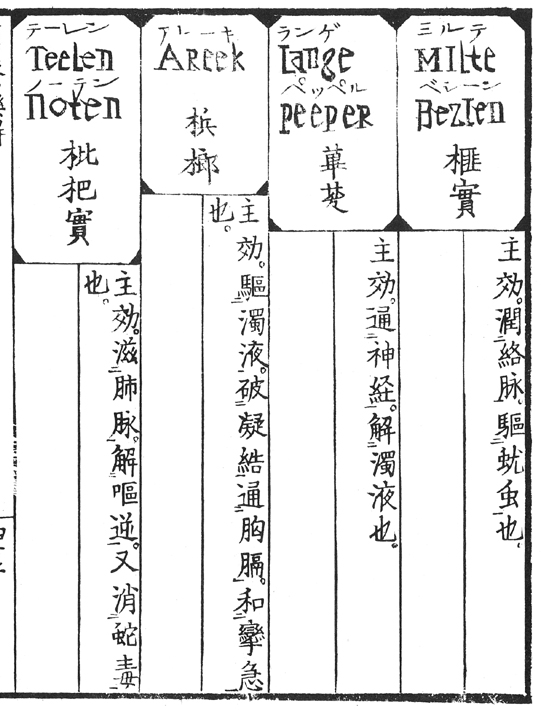 ミルテ
MIlte
ベシーン
BezIen
榧實
主効。潤絡脉、驅蚘虫也、
ランゲ
Lange
ペッペル
PeePeR
蓽茇
主効。通神経。解濁液也。
アレーキ
AReek
梹榔
主効。驅濁液。破凝結通胸膈。和攣急
也。
テーレン
Teelen
ノーテン
noten
枇杷實
主効。滋肺脉。解嘔逆。又消蛇毒
也。